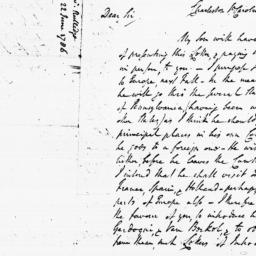 J. Rutledge
22 June 1786
Charleston So. Carolina
Dear Sir
My Son will have
of presenting this Letter, & paying
in person to you — I purpose
to Europe, next Fall — in the mean
he will go this the several
of Pennsylvania (having been
as I think he should
principal places in his own
he goes to a foreign one — he will
either, before he leaves the
I intend that he shall visit
France, Spain, & Holland — perhaps
parts of Europe also — I therefore
the favour of you, to introduce
Gardoqui, & Van Berkel, & to
have them, with Letters of Introd